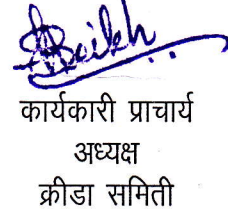 कार्यकारी प्राचार्य
अध्यक्ष
क्रीडा समिती